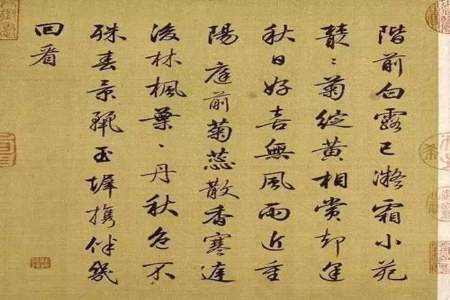 階前白露已凝霜小苑
叢〻菊綻黃相賞却逢
秋日好喜無風雨近重
陽庭前菊蕊散香寒遶
後林楓葉〻丹秋色不
殊春景麗玉墀攜伴幾
回看